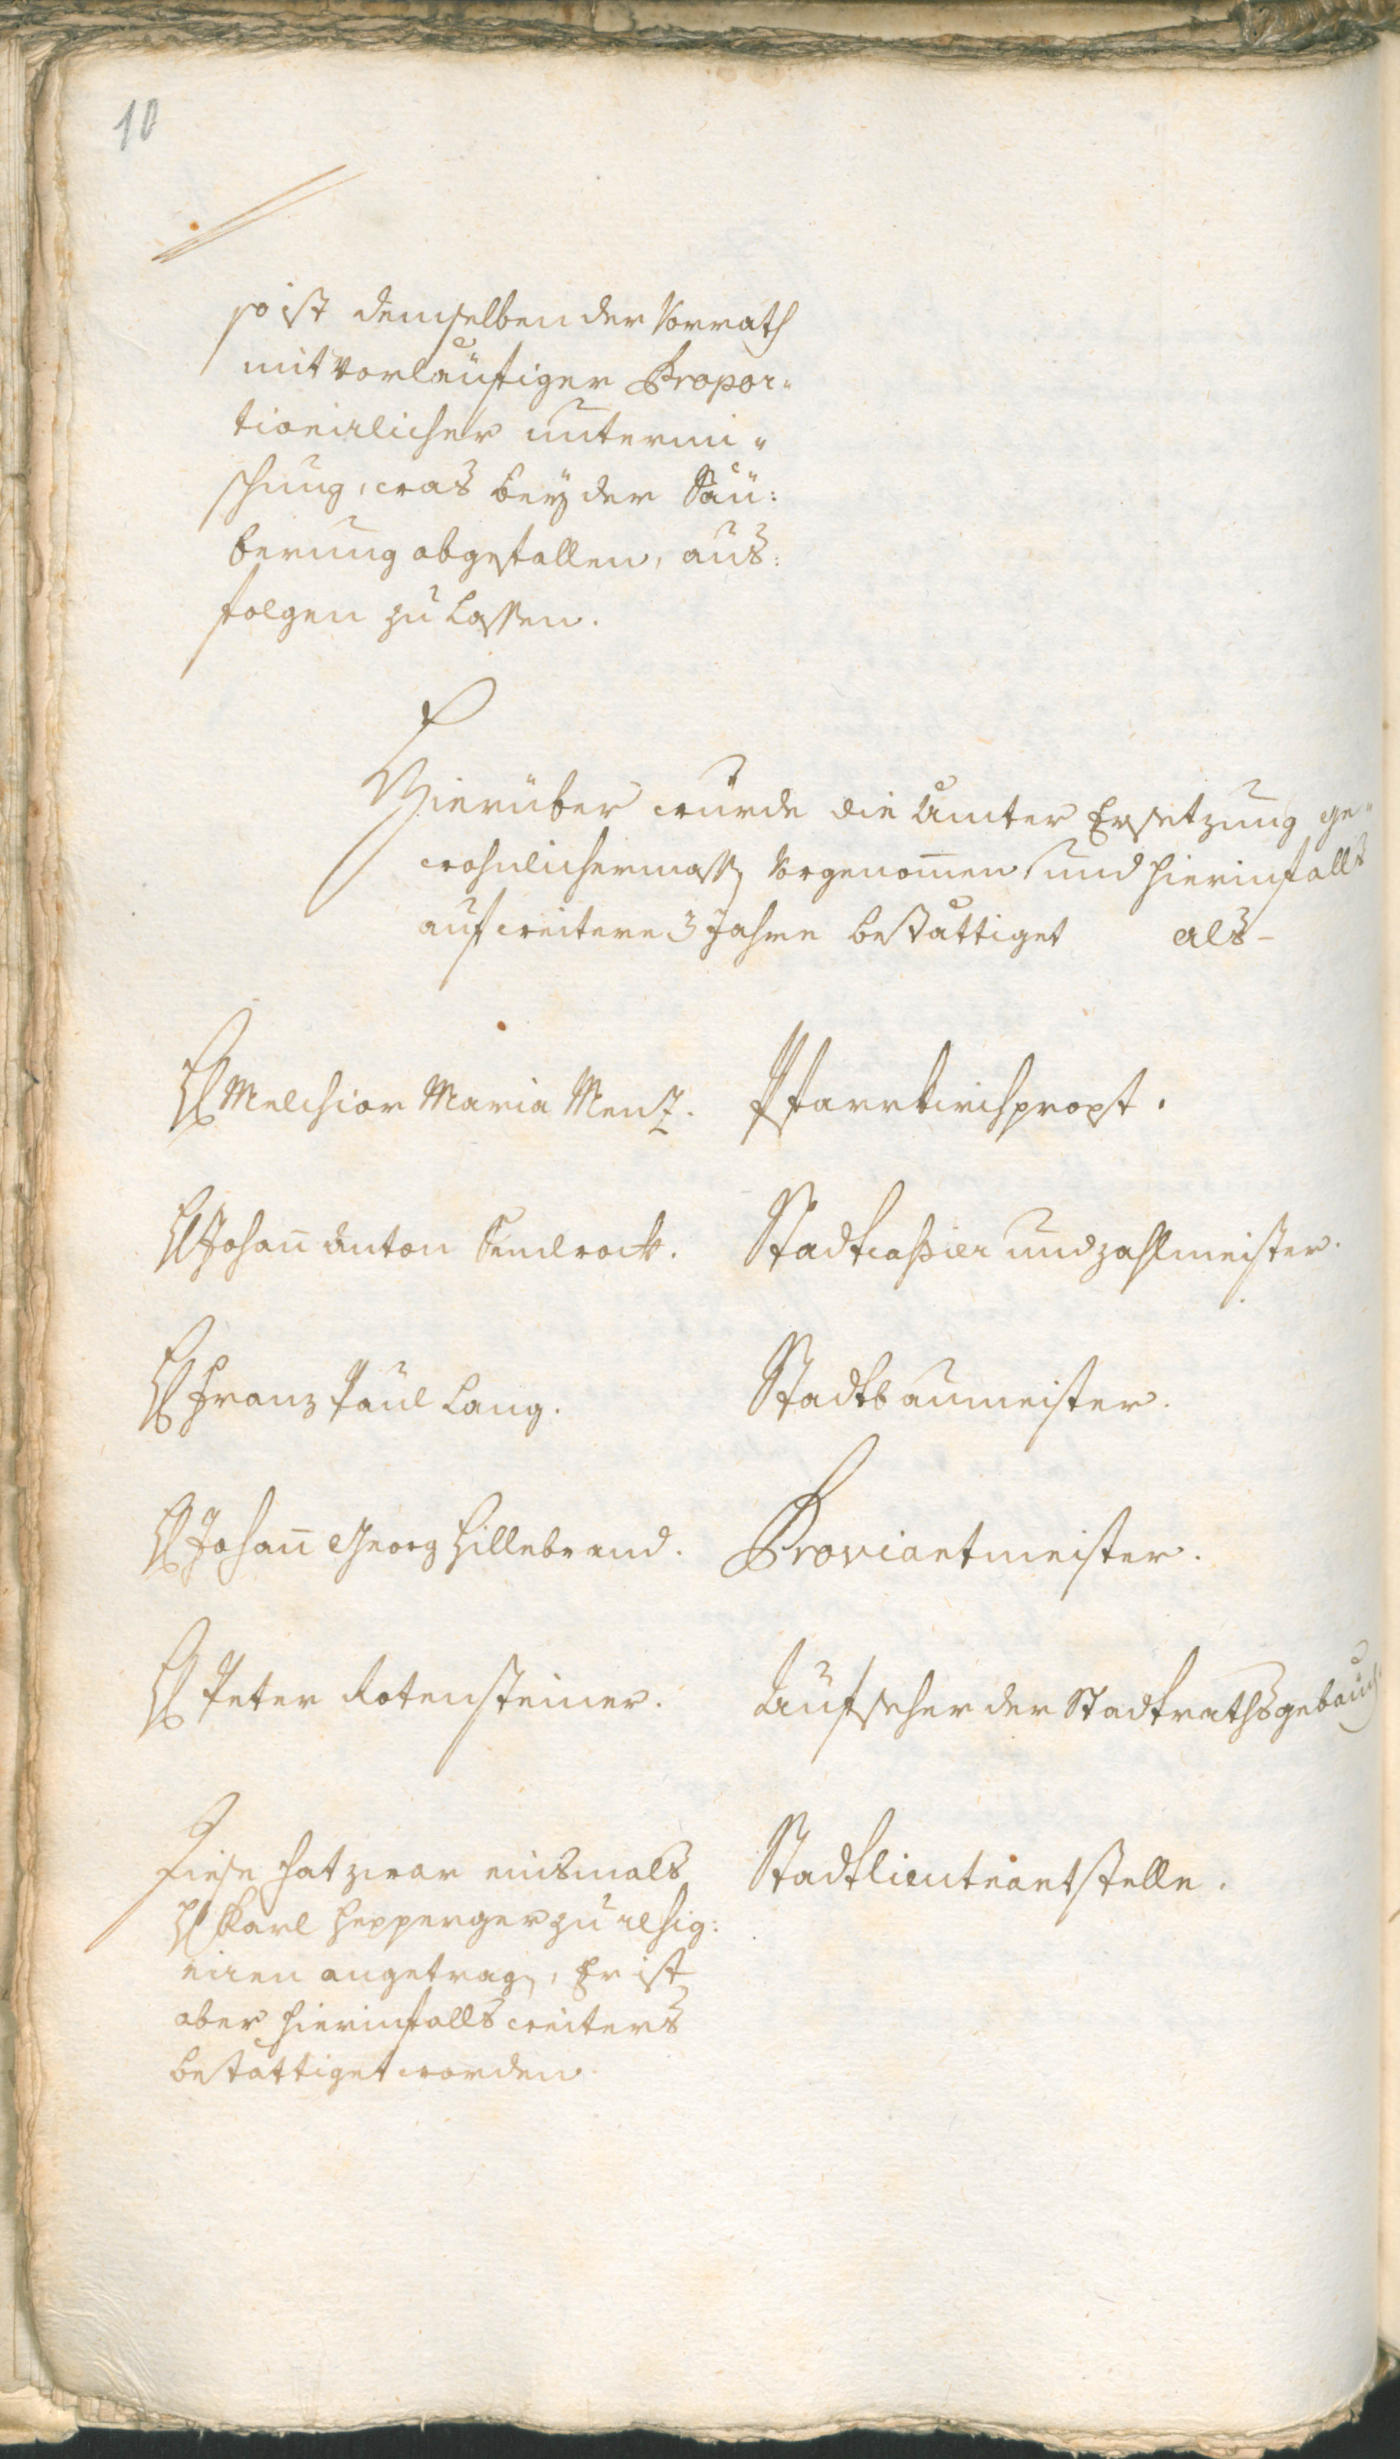 10
so ist demselben der Vorrath
mit vorläufiger Propor-
tionirlicher untermi-
schung, was bey der Säu:
berung abgefallen, aus:
folgen zu lassen.
Hierüber wurde die Ämter Ersetzung ge-
wohnlichermass vorgenom̄en, und hierinfalls
auf weitere 3 Jahre bestättiget als-
H Melchior Maria Menz. Pfarrkirchpropst.
H Johan̄ Anton Stadtcassier und zahlmeister.
H Franz Paul Lang. Stadtbaumeister.
H Johan̄ Georg Hillebrand. Proviantmeister.
H Peter Rotensteiner. Aufseher der Stadtrathsgebäu
Diese hat zwar eins mals Stadtlieutenantstelle.
H Karl Hepperger zu resig:
niren angetragen, Er ist
aber hierinfalls weiters
bestättiget worden